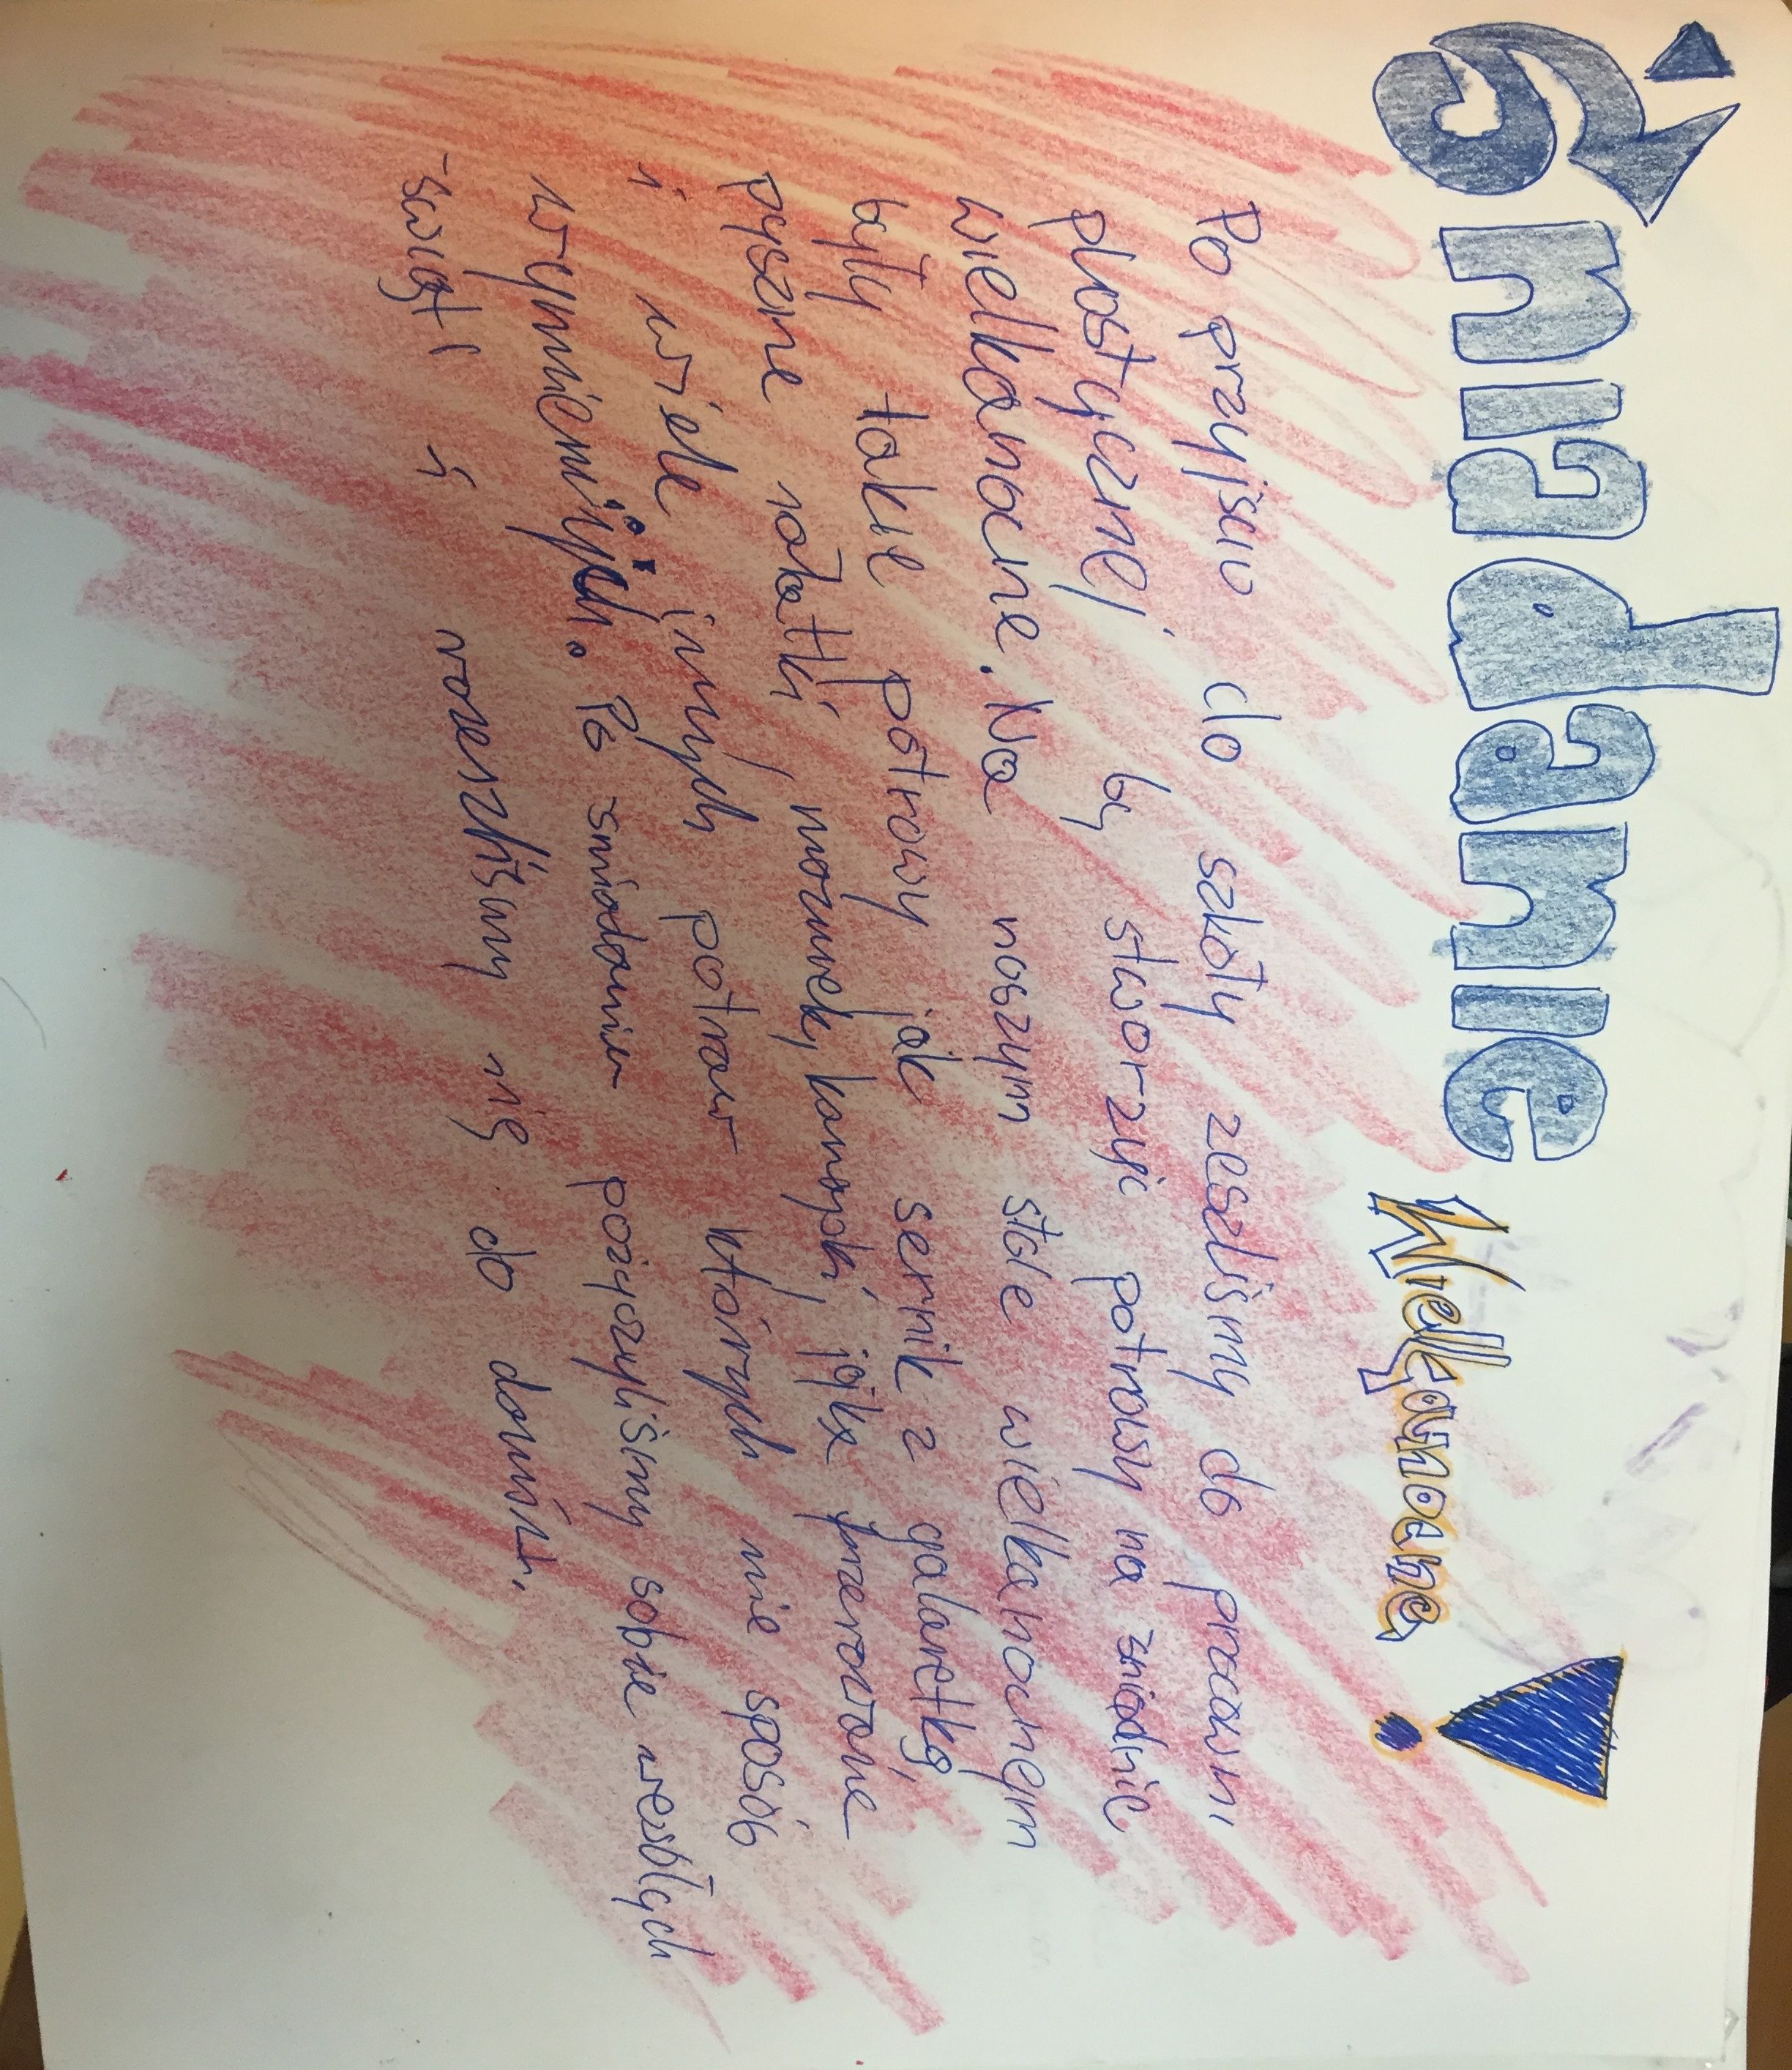 Śniadanie Wielkanocne!
Po przyjściu do szkoły zeszliśmy do pracowni
plastycznej by stworzyć potrawy na śniadnie
wielkanocne. Na naszym stole wielkanocnym
były takie potrawy jak sernik z galaretką,
pyszne sałatki mazurek, kanapki, jajka faszerowane
i wiele innych potraw których nie sposób
wymienić. Po śniadaniu pożyczyliśmy sobie wesołych
świąt i rozeszliśmy się do domów.